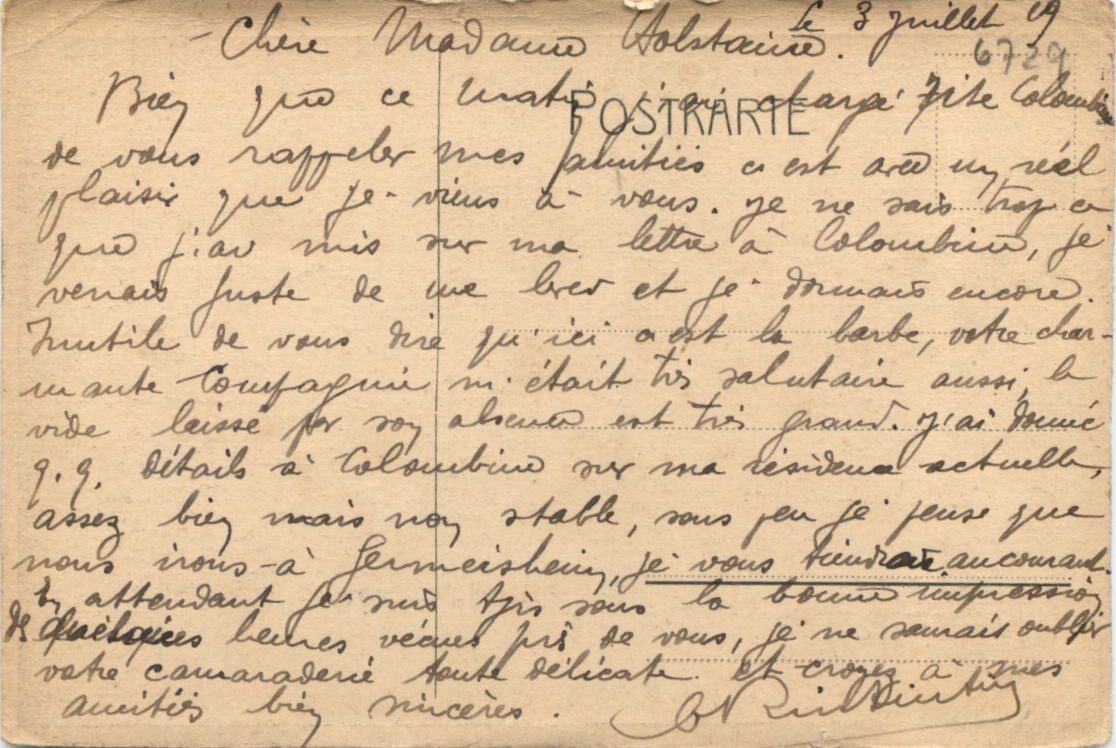 le 3 juillet 19
6729
- Chère Madame Holstaine.
POSTKARTE
Bien que ce matin j'ai chargé Colombine
de vous rappeler mes amitiés c'est avec un réel
plaisir que je viens à vous. Je ne sais trop ce
que j'ai mis sur ma lettre à Colombine, je
venais juste de me lever et je dormais encore.
Inutile de vous dire qu'ici c'est la barbe, votre char-
mante Compagnie m'était très salutaire aussi, le
vide laissé par son absence est très grand. J'ai donné
q.q. détails à Colombine sur ma résidence actuelle,
assez bien mais non stable, sous peu je pense que
nous irons à Germersheim, je vous tiendrai au courant.
En attendant je suis tjrs sous la bonne impression
de quelques heures vécues près de vous, je ne saurais oublier
votre camaraderie toute délicate et croyez à mes
amitiés bien sincères.